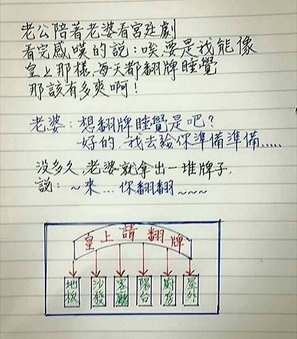 老公陪著老婆看宮廷劇
看完感嘆的說：唉，要是我能像
皇上那樣，每天都翻牌睡覺
那該有多爽啊！
老婆：想翻牌睡覺是吧？
好的，我去給你準備準備.....
沒多久，老婆就拿出一堆牌子，
說：~來...你翻翻~~~~
皇上請翻牌
地板 沙發 客廳 陽台 廚房 室外